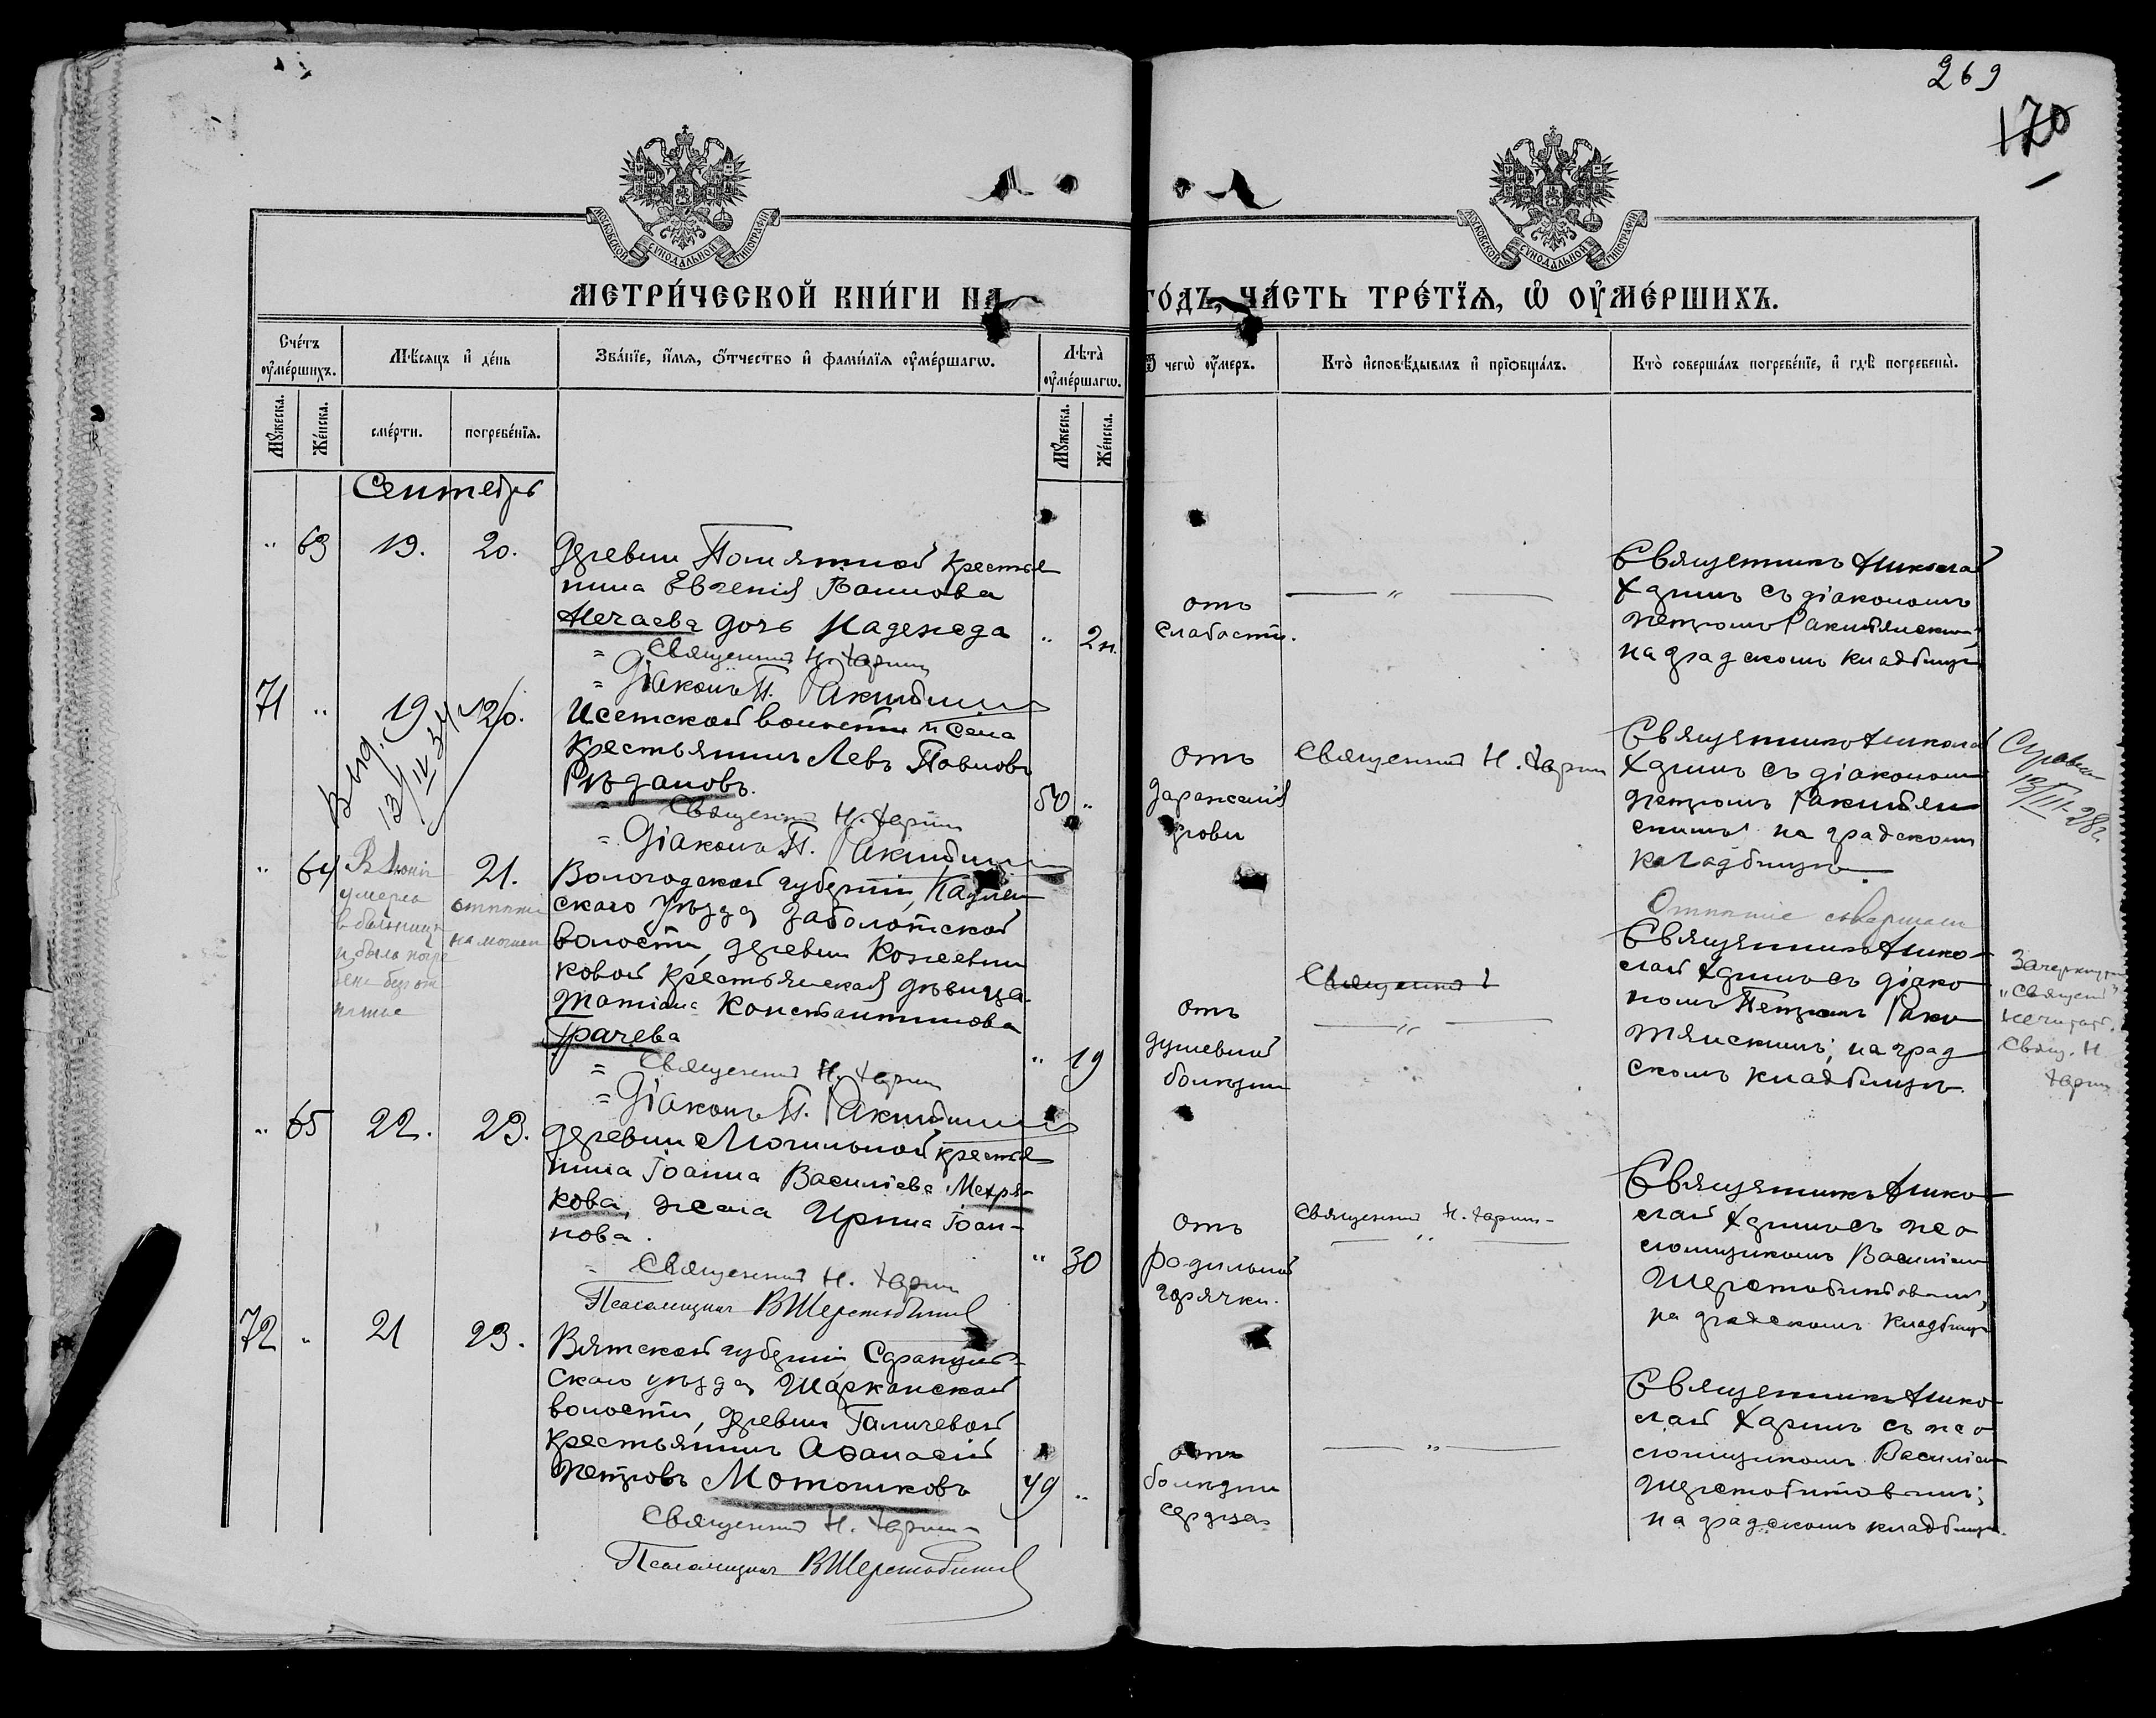 269
170
МОСКОВСКОЙ СѴНОДАЛЬНОЙ ТИПОГРАФІИ
МОСКОВСКОЙ СѴНОДАЛЬНОЙ ТИПОГРАФІИ
МЕТРИ́ЧЕСКОЙ КНИ́ГИ НА
ГО́ДЪ, ЧА́СТЬ ТРЕ́ТЇѦ, Ѡ҆ ОУ҆МЕ́РШИХЪ.
Сче́тъ оу҆ме́ршихъ.
Мѣ́сѧцъ и҆ де́нь
Зва́нїе, и҆́мѧ, ѻ҆́тчество и҆ фами́лїѧ оу҆ме́ршагѡ.
Лѣ́та̀ оу҆ме́ршагѡ.
Ѿ чегѡ̀ оу҆́меръ.
Кто̀ и҆сповѣ́дывалъ и҆ прїѡбща́лъ.
Кто̀ соверша́лъ погребе́нїе, и҆ гдѣ̀ погребены̀.
Мꙋ́жеска.
Же́нска.
сме́рти.
погребе́нїѧ.
Мꙋ́жеска.
Же́нска.
Сентябрь
" 63 19. 20.
деревни крестья
нина Евгенія Іоаннова
Нечаева дочь Надежда
" 2 н.
= Священник Н. Хдрин
= Діаконъ П. Ракитянскій
отъ
слабости.
— " —
Священникъ Николай
Хдринъ съ діакономъ
Петромъ Ракитянскимъ
на градскомъ кладбищѣ
71 " 19 20.
Выд.
13/IV 34
Исетской волости и села
крестьянинъ Левъ Павловъ
Рѣзановъ.
50 "
= Священник Н. Хдрин
= Діаконъ П. Ракитянскій
отъ
заражения
крови
Священник Н. Хдрин
Священникъ Николай
Хдринъ съ діакономъ
Петромъ Ракитян
скимъ на градскомъ
кладбищѣ.
Справка
13/III-28 г.
" 64
В Іюнѣ
умерла
в больницѣ
и была погре
бена без от
пѣтие
21.
отпѣта
на могиле
Вологодской губерніи, Кадни
скаго уѣзда Заболотской
волости, деревни Кожевни
ковой крестьянская дѣвица
Татіана Константинова
Грачева
" 19
= Священник Н. Хдрин
= Діаконъ П. Ракитянскій
отъ
душевной
болѣзни
Священник
— " —
Отпѣтие совершал
Священникъ Нико
лай Хдринъ съ діако
номъ Петромъ Раки
тянскимъ; на град
скомъ кладбищѣ.
Зачеркнутое
"Священ"
не читать.
Свящ. Н
Хдрин
" 65 22. 23.
деревни Могильной крестья
нина Іоанна Василіева Мехря
кова, жена Ирина Іоан-
нова.
" 30
= Священник Н. Хдрин
Псаломщик В Шерстобитов
отъ
родильной
горячки.
Священник Н. Хдрин
— " —
Священникъ Нико
лай Хдринъ съ пса
ломщикомъ Василіем
Шерстобитовымъ,
на градскомъ кладбищѣ
72 " 21 23.
Вятской губерніи Сарапуль-
скаго уѣзда Шарканской
волости, деревни Галичевой
крестьянинъ Афанасій
Петровъ Мотошковъ
49 "
Священник Н. Хдрин
Псаломщик В Шерстобитов
отъ
болѣзни
сердца
— " —
Священникъ Нико
лай Хдринъ съ пса
ломщикомъ Василіем
Шерстобитовымъ;
на градскомъ кладбищѣ.